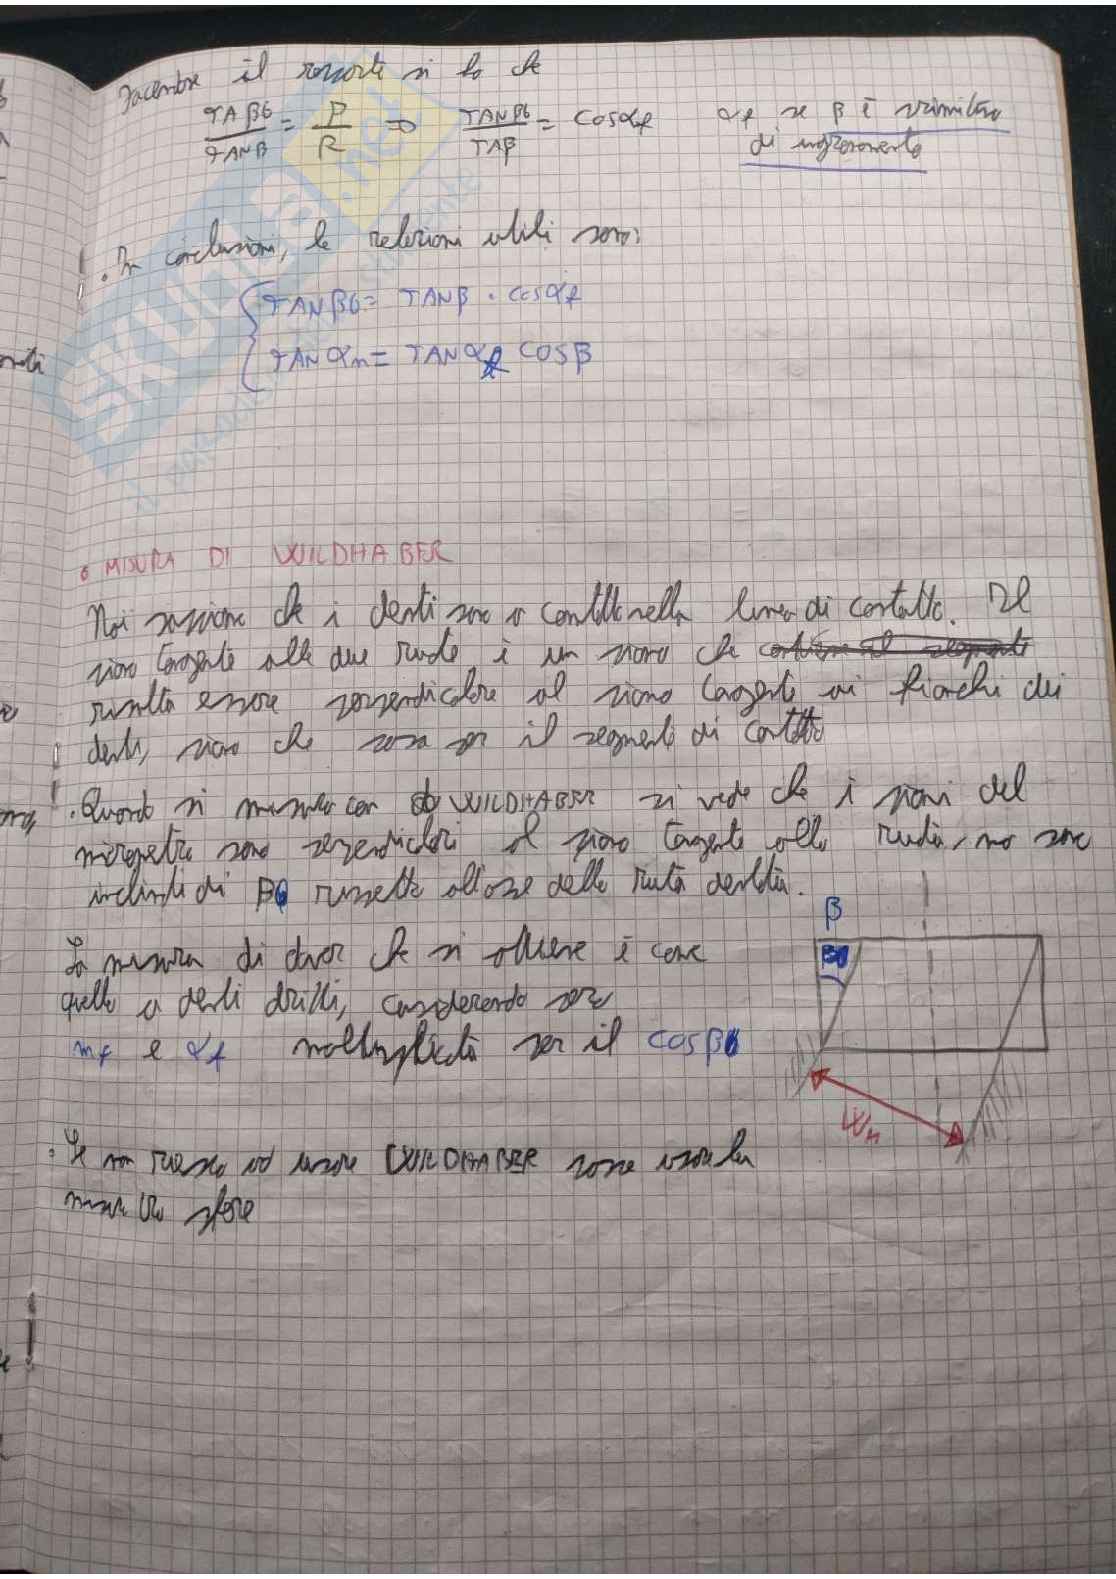 Facendone il rapporto si ha che
TAβ6/TANβ = P/R => TANβ6/TAβ = cosαf αf se β è primitivo
di ingranamento
. In conclusioni, le relazioni utili sono:
TANβ6 = TANβ . cosαf
TANαn = TANαf COSβ
• MISURA DI WILDHABER
Noi sappiamo che i denti sono a contatto nella linea di contatto. Il
piano tangente alle due ruote è un piano che
risulta essere perpendicolare al piano tangente ai fianchi dei
denti, piano che passa per il segmento di contatto
. Quando si misura con WILDHABER si vede che i piani del
micrometro sono perpendicolari al piano tangente alla ruota, ma sono
inclinati di β6 rispetto all'asse della ruota dentata.
β
La misura di che si ottiene è come
quella a denti dritti, considerando però
mf e αf moltiplicata per il COSβ6
Wn
. Se non riesco ad usare WILDHABER posso usare la
misura sfere
SKUOLA.net